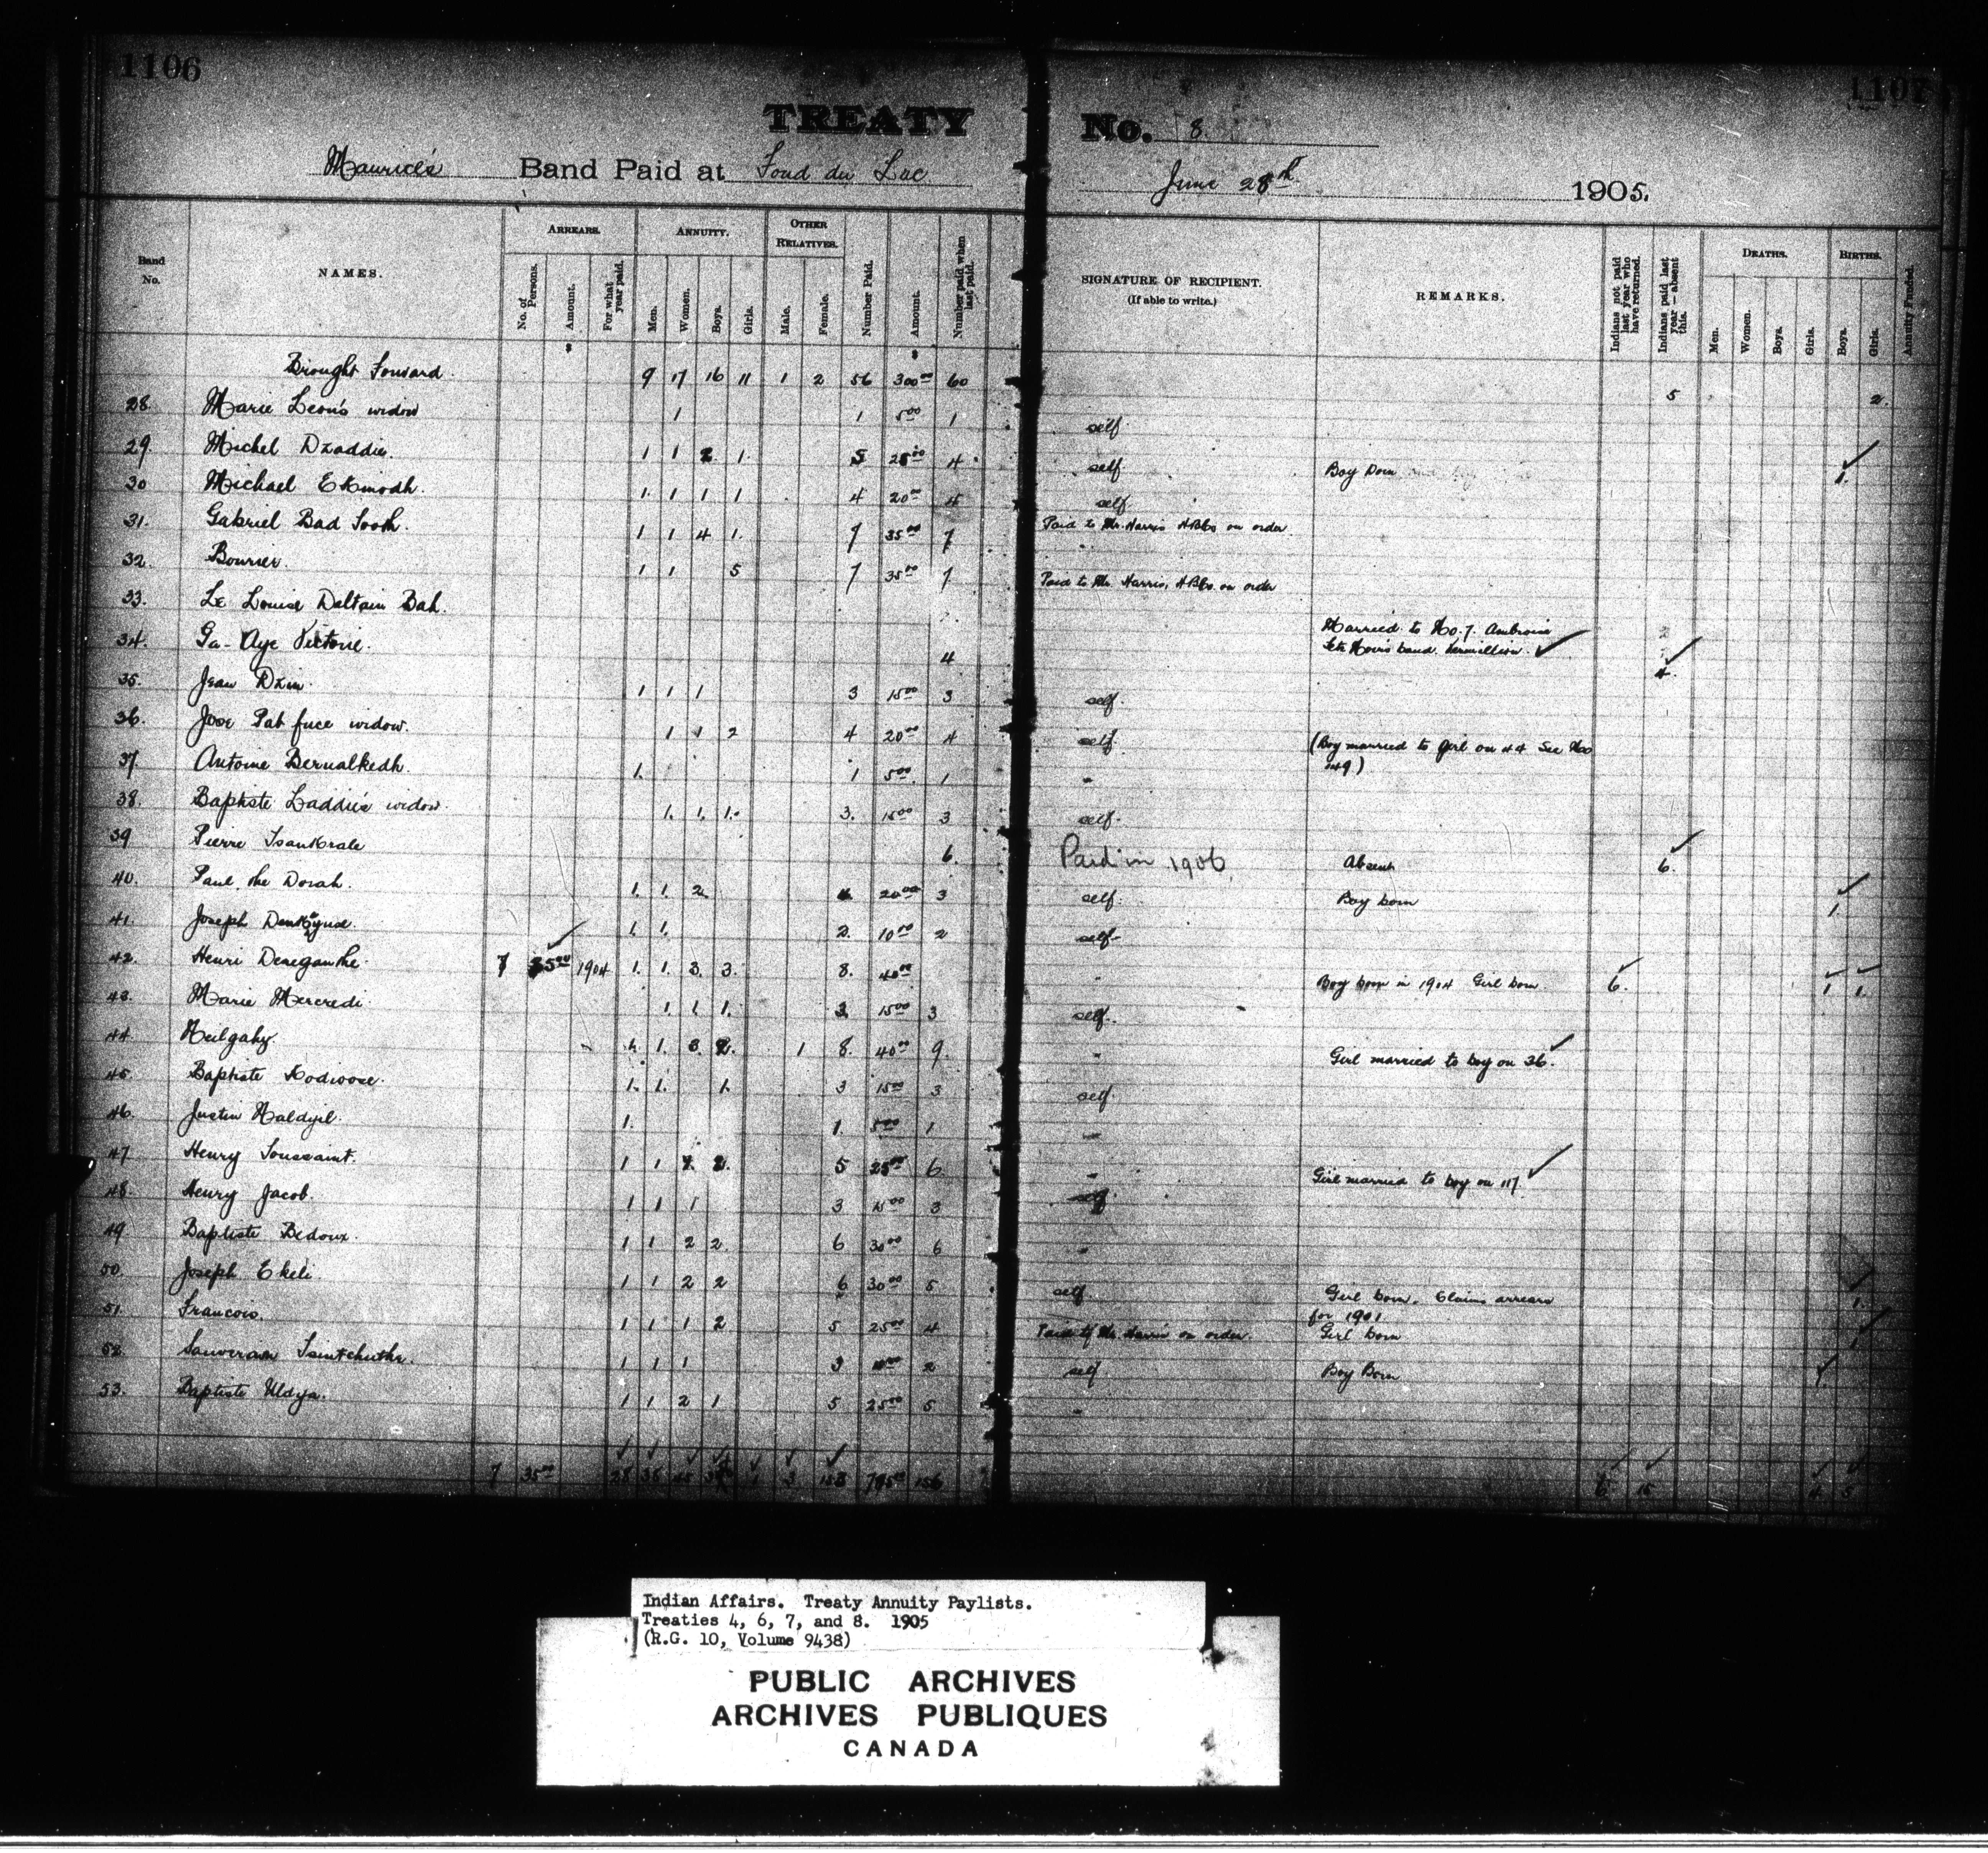 1106
1107
TREATY No. 8.
Maurice's Band Paid at Fond du Lac June 28th 1905.
Band No.
NAMES.
ARREARS.
No. of Persons.
Amount.
For what year paid.
ANNUITY.
Men.
Women.
Boys.
Girls.
OTHER RELATIVES.
Male.
Female.
Number Paid.
Amount.
Number paid when last paid.
SIGNATURE OF RECIPIENT.
(If able to write.)
REMARKS.
Indians not paid last year who have returned.
Indians paid last year—absent this.
DEATHS.
Men.
Women.
Boys.
Girls.
BIRTHS.
Boys.
Girls.
Annuity Funded.
Brought Forward 9 17 16 11 1 2 56 300 00 60 5 2
28. Marie Leon's widow 1 1 5 00 1 self
29. Michel Dzaddie 1 1 2 1 5 25 00 4 self Boy born 1
30 Michael Ekmodh. 1 1 1 1 4 20 00 4 self
31. Gabriel Bad Tooth. 1 1 4 1 7 35 00 7 Paid to Mr. Harris HBCo on order
32. Bourier. 1 1 5 7 35 00 7 Paid to Mr. Harris, HBCo on order
33. Le Louise Deltain Bah.
34. Ga-Aye Victorie. 4 Married to No. 7. Ambroise
band. Vermillion. 4
35. Jean Dzin 1 1 1 3 15 00 3 self.
36. widow. 1 1 2 4 20 00 4 self (Boy married to girl on 44 See No
149)
37. Antoine Bernalkedh. 1. 1 5 00 1 "
38. Baptiste Laddie's widow. 1. 1. 1. 3. 15 00 3 self.
39 Pierre 6. Paid in 1906 Absent 6.
40. Paul the Dorah. 1. 1. 2. 4 20 00 3 self. Boy born 1
41. Joseph 1. 1. 2. 10 00 2 self
42. Henri Deneganthe. 7 35 00 1904 1. 1. 3. 3. 8. 40 00 " Boy born in 1904 Girl born 6. 1 1.
43. Marie Mercredi. 1. 1. 1. 3. 15 00 3 self.
44. Neilgahy. 1. 1. 3. 2. 1 8. 40 00 9. " Girl married to boy on 36.
45. Baptiste Kodwoose. 1. 1. 1. 3 15 00 3 self.
46. Justin Naldzil. 1. 1. 5 00 1 "
47 Henry Toussaint. 1 1 2. 5 25 00 6 " Girl married to boy on 117
48. Henry Jacob. 1 1 1 3 15 00 3 self
49. Baptiste Bedoux. 1 1 2 2. 6 30 00 6 "
50. Joseph Ekeli 1 1 2 2 6 30 00 5 self Girl born. Claims arrears
for 1901 1.
51. Francois. 1 1 1 2 5 25 00 4 Paid to Mr. Harris on order. Girl born 1
52. 1 1 1 3 2 self Boy Born 1.
53. Baptiste Uldya. 1 1 2 1 5 25 00 5 "
7 35 00 28 38 45 1 3 795 00 156 6 15 4 5
Indian Affairs. Treaty Annuity Paylists.
Treaties 4, 6, 7, and 8. 1905
(R.G. 10, Volume 9438)
PUBLIC ARCHIVES
ARCHIVES PUBLIQUES
CANADA